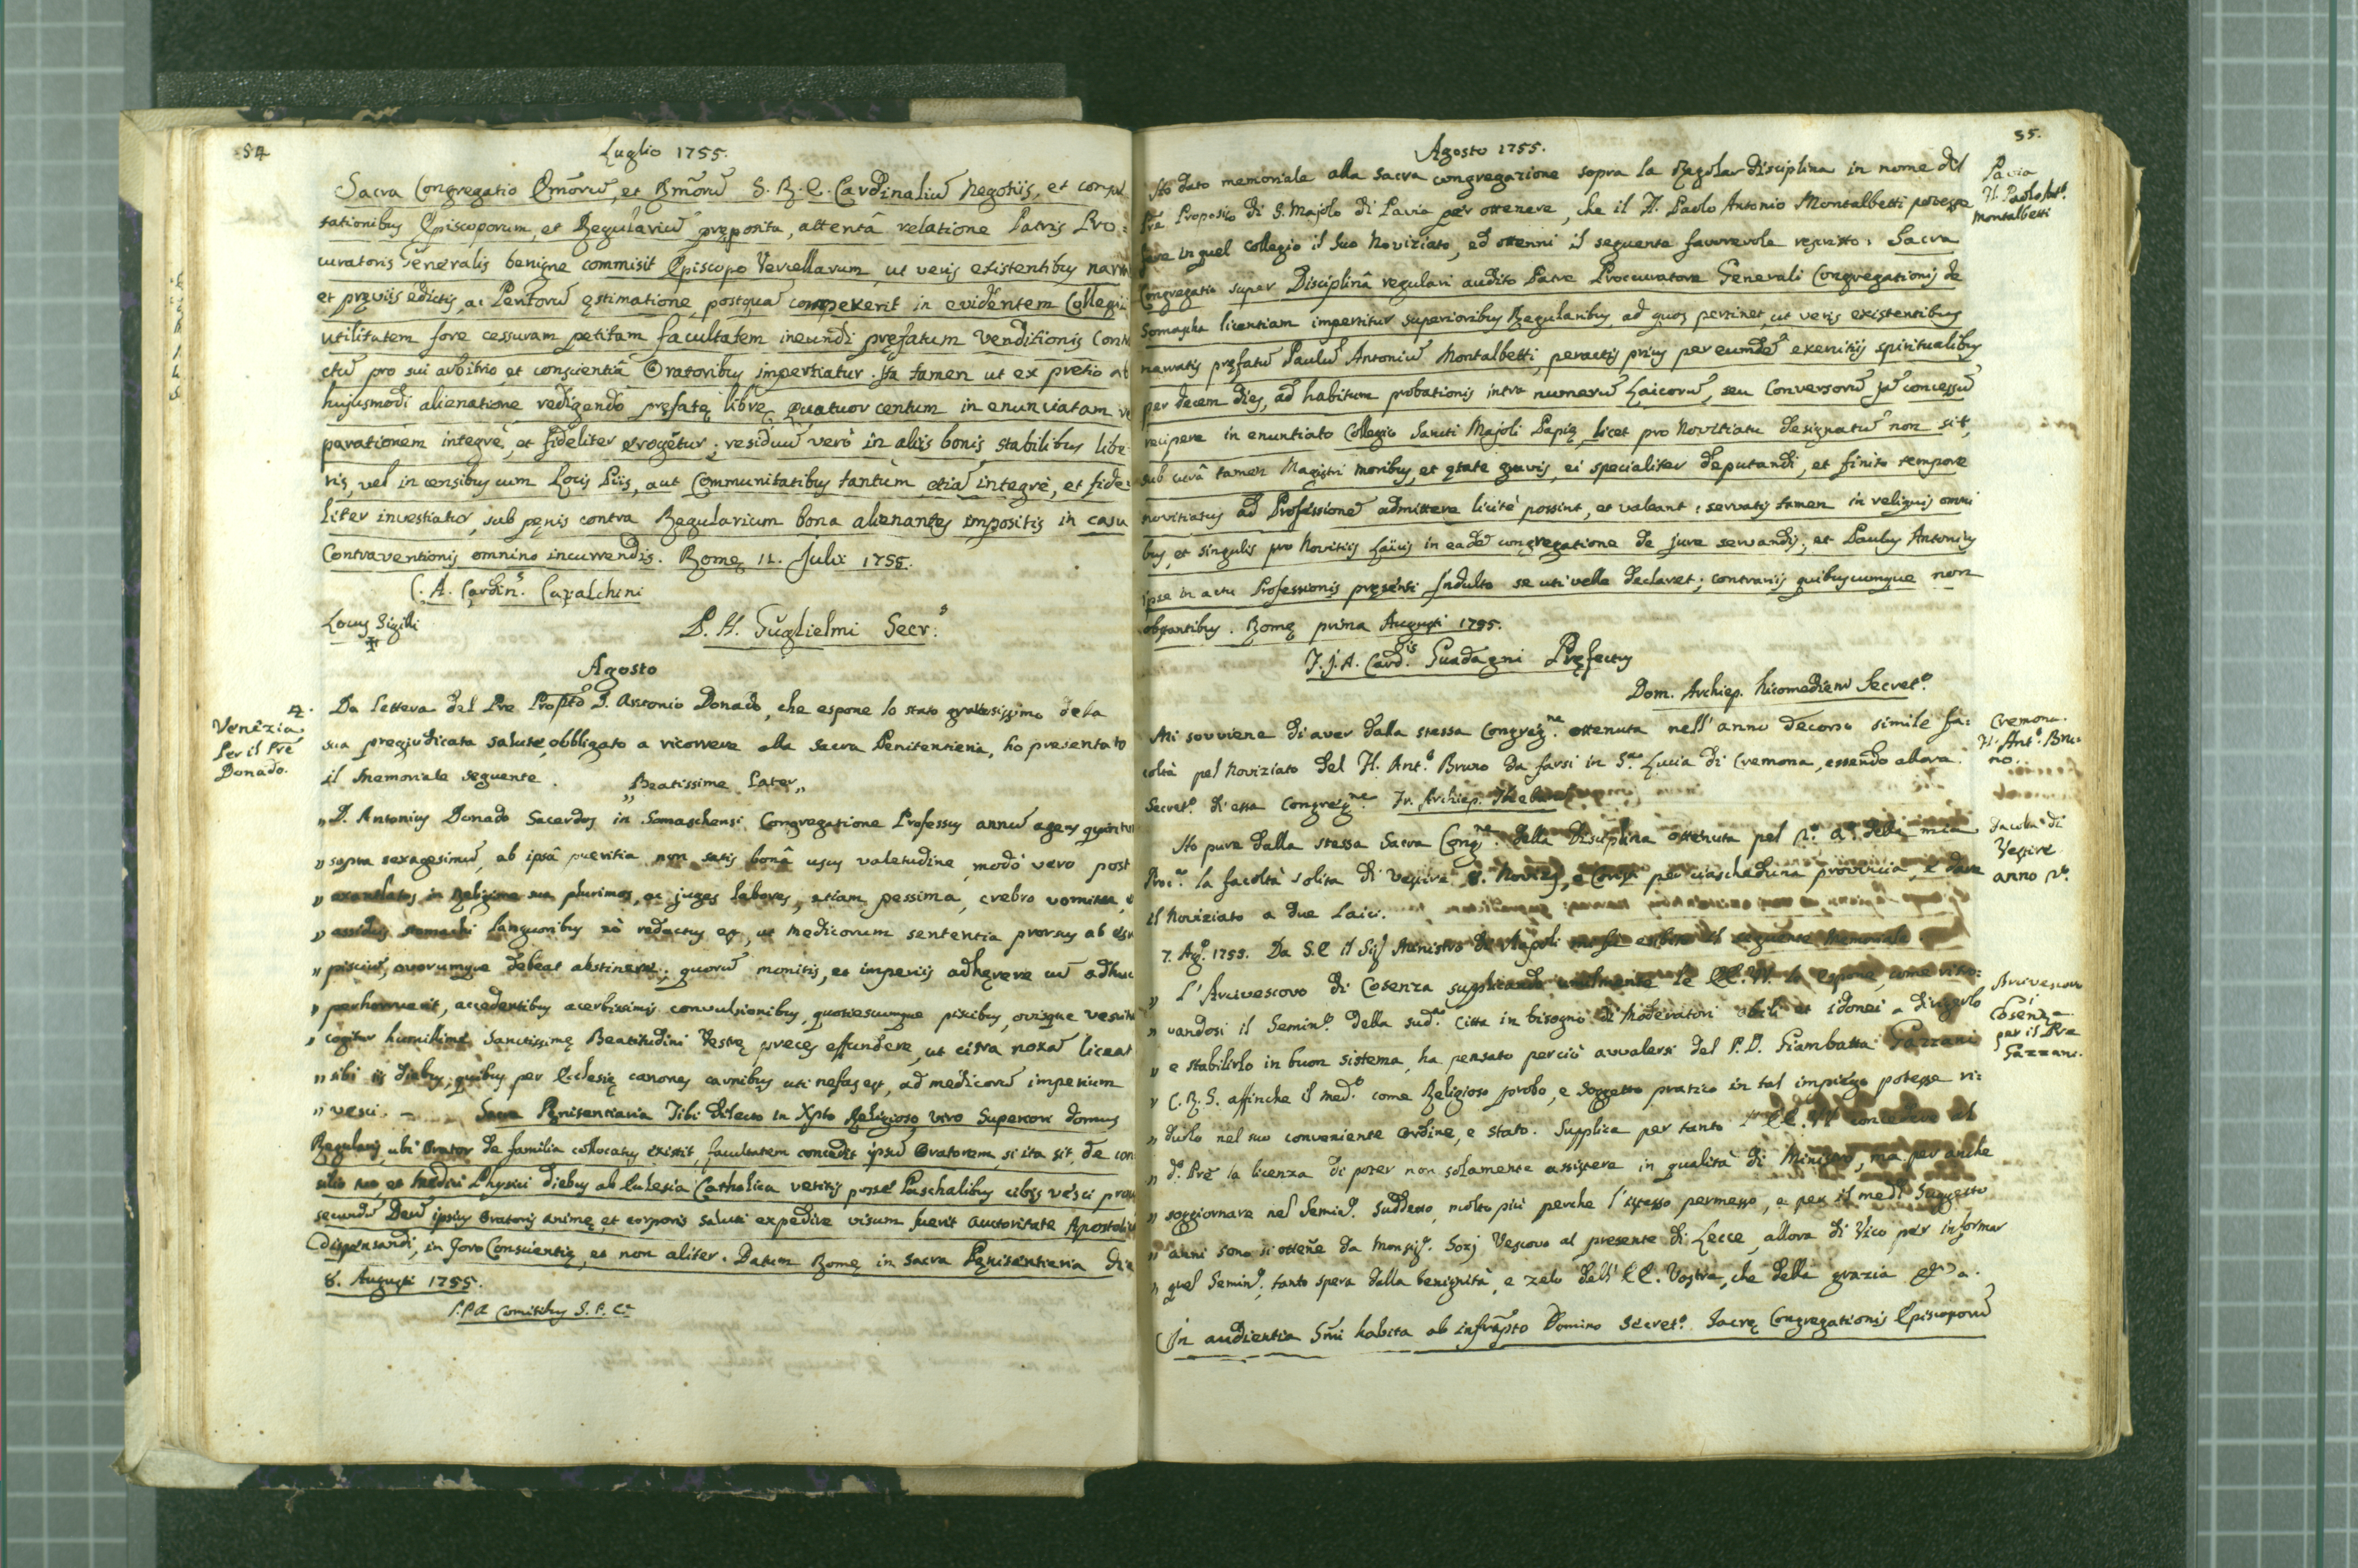 54
Luglio 1755.
Sacra Congregatio Emōrū, et Rmōrū S. R. E. Cardinaliū Negotiis, et consul
tationibus Episcoporum, et Regulariū pręposita, attentâ relatione Patris Pro:
curatoris Generalis benigne commisit Episcopo Vercellarum, ut veris existentibus narra
et pręviis edictis, ac Peritorū ęstimatione, postquā compexerit in evidentem Collegii
utilitatem fore cessuram petitam facultatem ineundi pręfatum Venditionis Contra
ctū pro sui arbitrio, et conscientiâ Oratoribus impertiatur. Ita tamen ut ex pretio ab
hujusmodi alienatione redigendo pręfatę librę quatuor centum in enunciatam re
parationem integrè, et fideliter erogētur; residuū verò in aliis bonis stabilibus libe:
ris, vel in censibus cum Locis Piis, aut Communitatibus tantùm etiā integrè, et fide:
liter investiatur, sub pęnis contra Regularium bona alienantes impositis in casu
Contraventionis omnino incurrendis. Romę 11. Julii 1755.
C. A. Cardin.s Cavalchini
Locus Sigilli
P. H. Guglielmi Secr.s
Agosto
4.
Venezia.
Per il Prē
Donado.
Da lettera del Pre Propto D. Antonio Donado, che espone lo stato gravosissimo dela
sua pregiudicata salute, obbligato a ricorrere alla sacra Penitentieria, ho presentato
il memoriale seguente. „Beatissime Pater„
„D. Antonius Donado Sacerdos in Somaschensi Congregatione Professus annū agens quintum
„supra sexagesimū, ab ipsâ pueritia non satis bonâ usus valetudine, modò vero post
„exantlatos in Religione sua plurimos, ac juges labores, etiam pessima, crebro vomitu,
„assiduis stomachi languoribus eò redactus est, ut medicorum sententia prorsus ab esu
„pisciū, ovorumque debeat abstinere; quorū monitis, et imperiis adhęrere cū adhuc
„perhorruerit, accedentibus acerbissimis convulsionibus, quotiescumque piscibus, ovisque vesci
„cogitur humillime Sanctissimę Beatitudini Vestrę preces effundere, ut citra noxā liceat
„sibi iis diebus, quibus per Ecclesię canones carnibus uti nefas est, ad medicorū imperium
„vesci. — Sacra Pęnitentiaria Tibi dilecto in Xpto Religioso viro Superiori domus
Regularis, ubi Orator de familia collocatus existit, facultatem concedit ipsū Oratorem, si ita sit, de con
silio tuo, et Medici Physici diebus ab Ecclesia Catholica vetitis posse Paschalibus cibis vesci prout
secundū Deū ipsius Oratoris animę, et corporis saluti expedire visum fuerit auctoritate Apostolica
dispensandi, in Foro Conscientię, et non aliter. Datum Romę in Sacra Pęnitentieria die
8. Augusti 1755.
P. P. A Comitibus S. P. C.
55.
Agosto 1755.
Pavia
H. Paolo Ant.o
Montalbetti
Ho dato memoriale alla sacra congregazione sopra la Regolar disciplina in nome del
Prē Proposito di S. Majolo di Pavia per ottenere, che il H. Paolo Antonio Montalbetti potesse
fare in quel Collegio il suo Noviziato, ed ottenni il seguente favorevole rescritto: Sacra
Congregatio super Disciplinâ regulari audito Patre Procuratore Generali Congregationis de
Somascha licentiam impertitur superioribus Regularibus, ad quos pertinet, ut veris existentibus
narratis pręfatū Paulū Antoniū Montalbetti, peractis prius per eumdē exercitiis spiritualibus
per decem dies, ad habitum probationis intra numerū Laicorū, seu Conversorū jā concessū
recipere in enuntiato Collegio Sancti Majoli Papię, licet pro Novitiatu designatū non sit,
sub curâ tamen Magistri moribus, et ętate gravis, ei specialiter deputandi, et finito tempore
novitiatus ad Professionē admittere licitè possint, et valeant: servatis tamen in reliquis omni
bus, et singulis pro Novitiis Laicis in eadē congregatione de jure servandis; et Paulus Antonius
ipse in actu Professionis pręsenti Indulto se uti velle declaret; contrariis quibuscumque non
obstantibus. Romę prima Augusti 1755.
F. J. A. Card.lis Guadagni Pręfectus
Dom. Archiep. Nicomedien Secret.s
Cremona.
H. Ant.o Bru:
no.
Mi sovviene di aver dalla stessa Congregne ottenuta nell' anno decorso simile fa:
coltà pel Noviziato del H. Ant.o Bruno da farsi in S.ta Lucia di Cremona, essendo allora
Secret.o di essa Congregne. Fr. Archiep.
Facoltà di
Vestire
anno
Ho pure dalla stessa Sacra Congne. della Disciplina ottenuta pel della mia
Proc. la facoltà solita di vestire 8. Novizj, e Conversi per ciascheduna provincia, e dare
il Noviziato a due Laici.
7. Ag.o 1755. Da S. E il Sig Ministro di Napoli mi fu esibito il seguente Memoriale
Arcivescovo
di
Cosenza
per il Pre
Gazzani.
„ L'Arcivescovo di Cosenza supplicando umilmente le EE. VV. le espone, come ritro:
„ vandosi il Semin.o della sud.a Città in bisogno di Moderatori abili et idonei a dirigerlo
„ e stabilirlo in buon sistema, ha pensato perciò avvalersi del P. D. Giambatta Gazzani
„ C. R. S. affinche il med.o come Religioso probo, e soggetto pratico in tal impiego potesse ri:
„ durlo nel suo conveniente ordine, e stato. Supplica per tanto l' EE. VV concedere al
„ d.o Prē la licenza di poter non solamente assistere in qualità di Ministro, ma per anche
„ soggiornare nel Semin.o suddetto, molto più perche l'istesso permesso, e per il med.o Soggetto
„ anni sono si ottenē da Monsig.r Sozj Vescovo al presente di Lecce, allora di Vico per informar
„ quel Semin.o; tanto spera dalla benignità, e zelo dell' EE. Vostre, che della grazia
In audientia Smi habita ab infrāpto Domino Secret.o Sacrę Congregationis Episcoporū